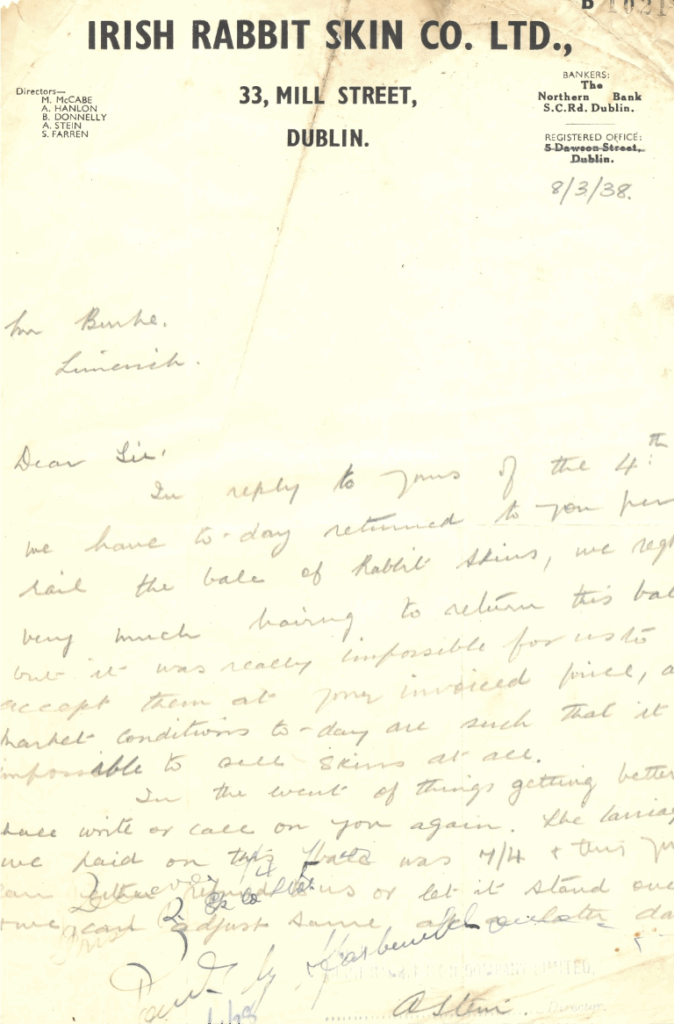 B 1021
IRISH RABBIT SKIN CO. LTD.,
33, MILL STREET,
DUBLIN.
Directors—
M. McCABE
A. HANLON
B. DONNELLY
A. STEIN
S. FARREN
BANKERS:
The
Northern Bank
S.C.Rd. Dublin.
REGISTERED OFFICE:
5 Dawson Street,
Dublin.
8/3/38.
Mr Burke.
Limerick.
Dear Sir,
In reply to yours of the 4th
we have to-day returned to you per
rail the bale of Rabbit Skins, we
very much having to return this
but it was really impossible for us to
accept them at your invoiced price,
market conditions to-day are such that it
impossible to sell Skins at all.
In the event of things getting better
write or call on you again. The
we paid on this was 7/4 &
or let it stand
we can adjust same
Paid by
LIMITED.
A Stein.
Director.